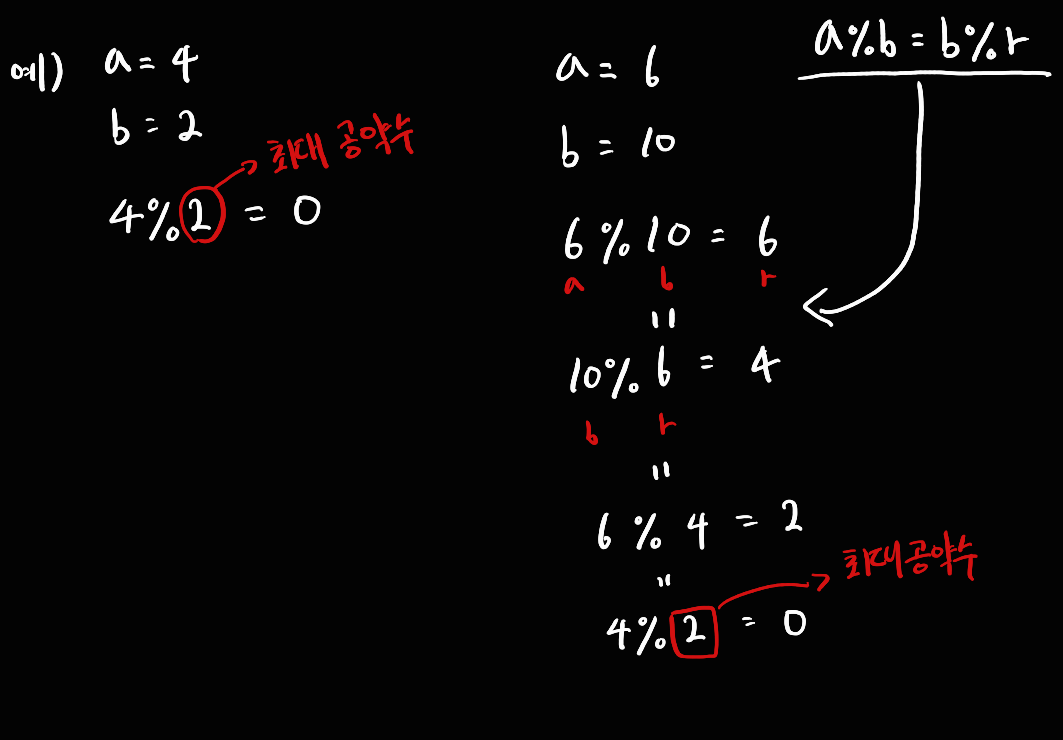 예) a = 4
b = 2
최대 공약수
4%2 = 0
a%b = b%r
a = 6
b = 10
6 % 10 = 6
a b r
=
10% 6 = 4
b r
=
6 % 4 = 2
=
최대공약수
4%2 = 0